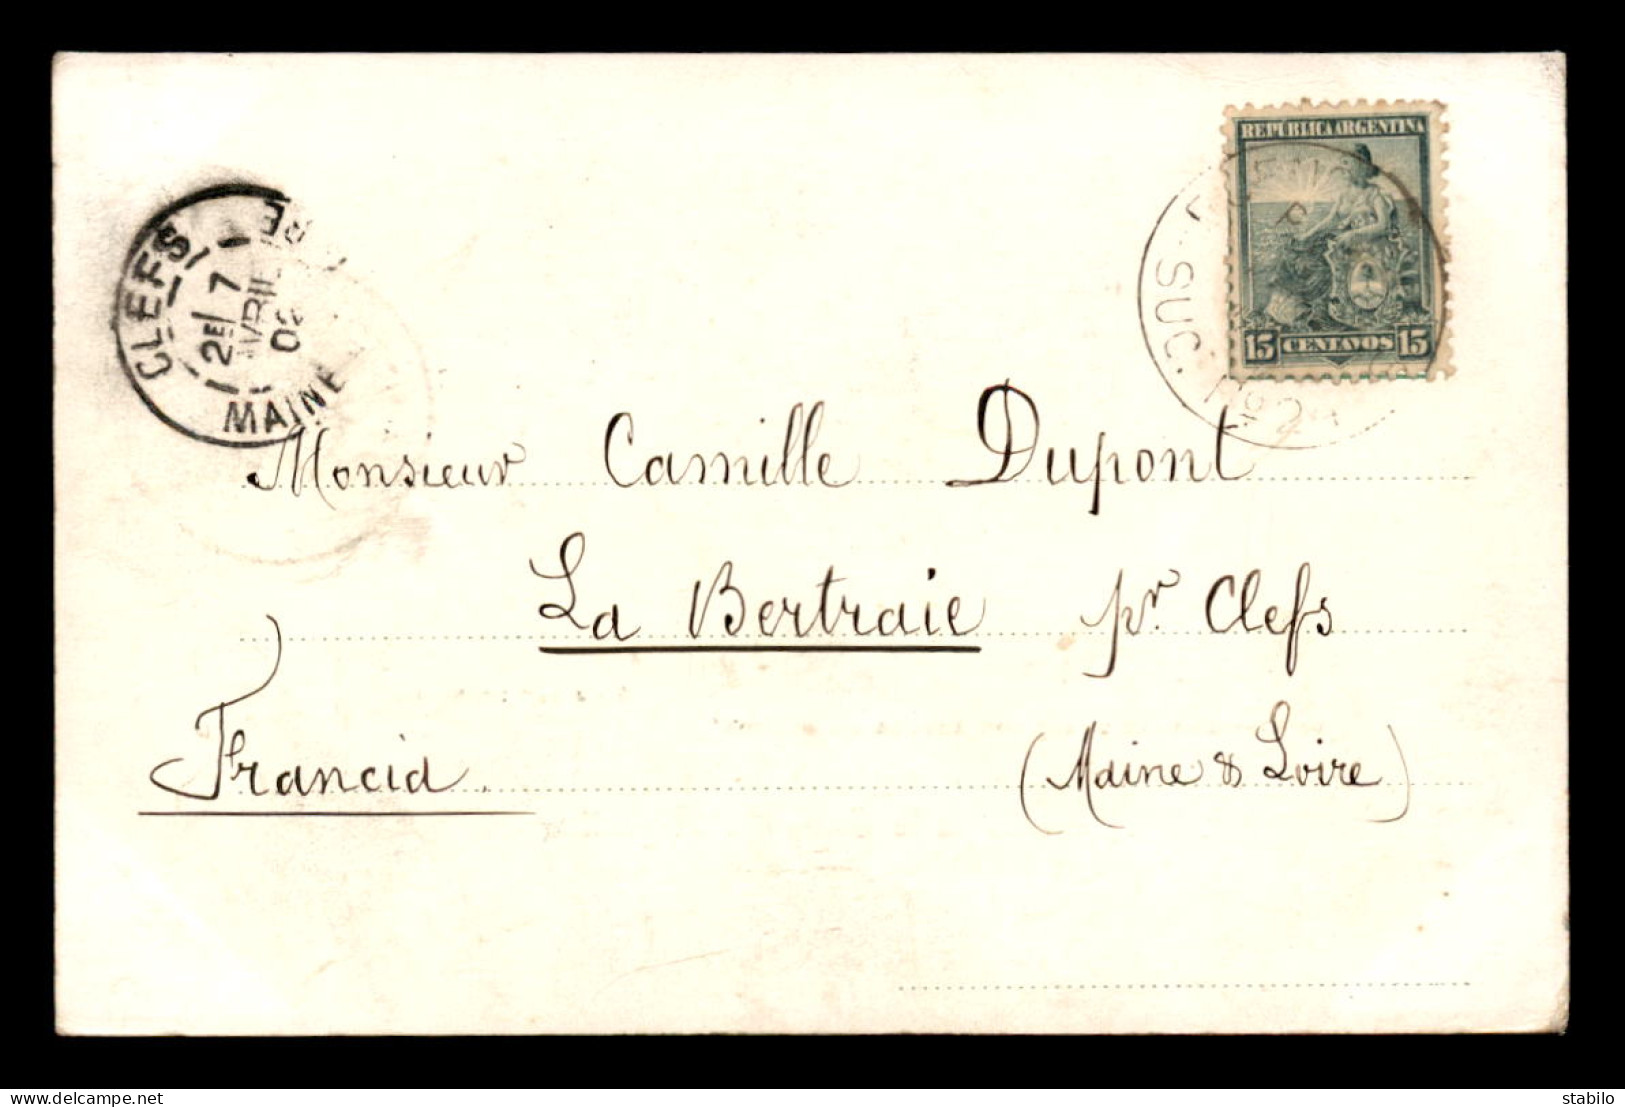 REPUBLICA ARGENTINA
15 CENTAVOS 15
SUC. Nº 24
CLEFS
2E 7
AVRIL
02
MAINE
Monsieur Camille Dupont
La Bertraie pr Clefs
Francia (Maine & Loire)
delcampe.net
stabilo